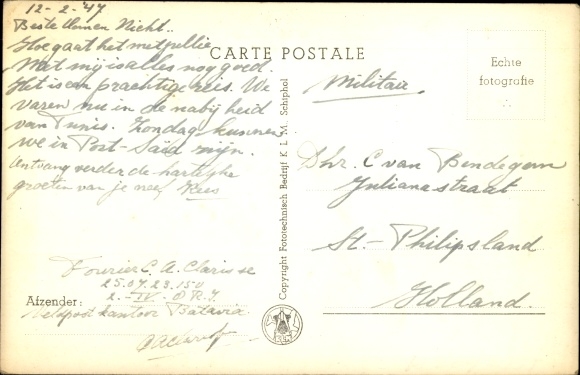 12-2-'47
Beste Oom en Nicht..
Hoe gaat het met jullie
Met mij is alles nog goed.
Het is een prachtige reis. We
varen nu in de nabijheid
van Tunis. Zondag kunnen
we in Port-Saïd zijn.
Ontvang verder de hartelijke
groeten van je neef Kees
CARTE POSTALE
Echte
fotografie
Militair
Dhr. C van Bendegem
Julianastraat
St.-Philipsland
Holland.
Copyright Fototechnisch Bedrijf K. L. M. Schiphol
Fourier C. A. Clarisse
25.07.23.150
2-IV-O R.I.
Afzender:
Veldpostkantoor Batavia